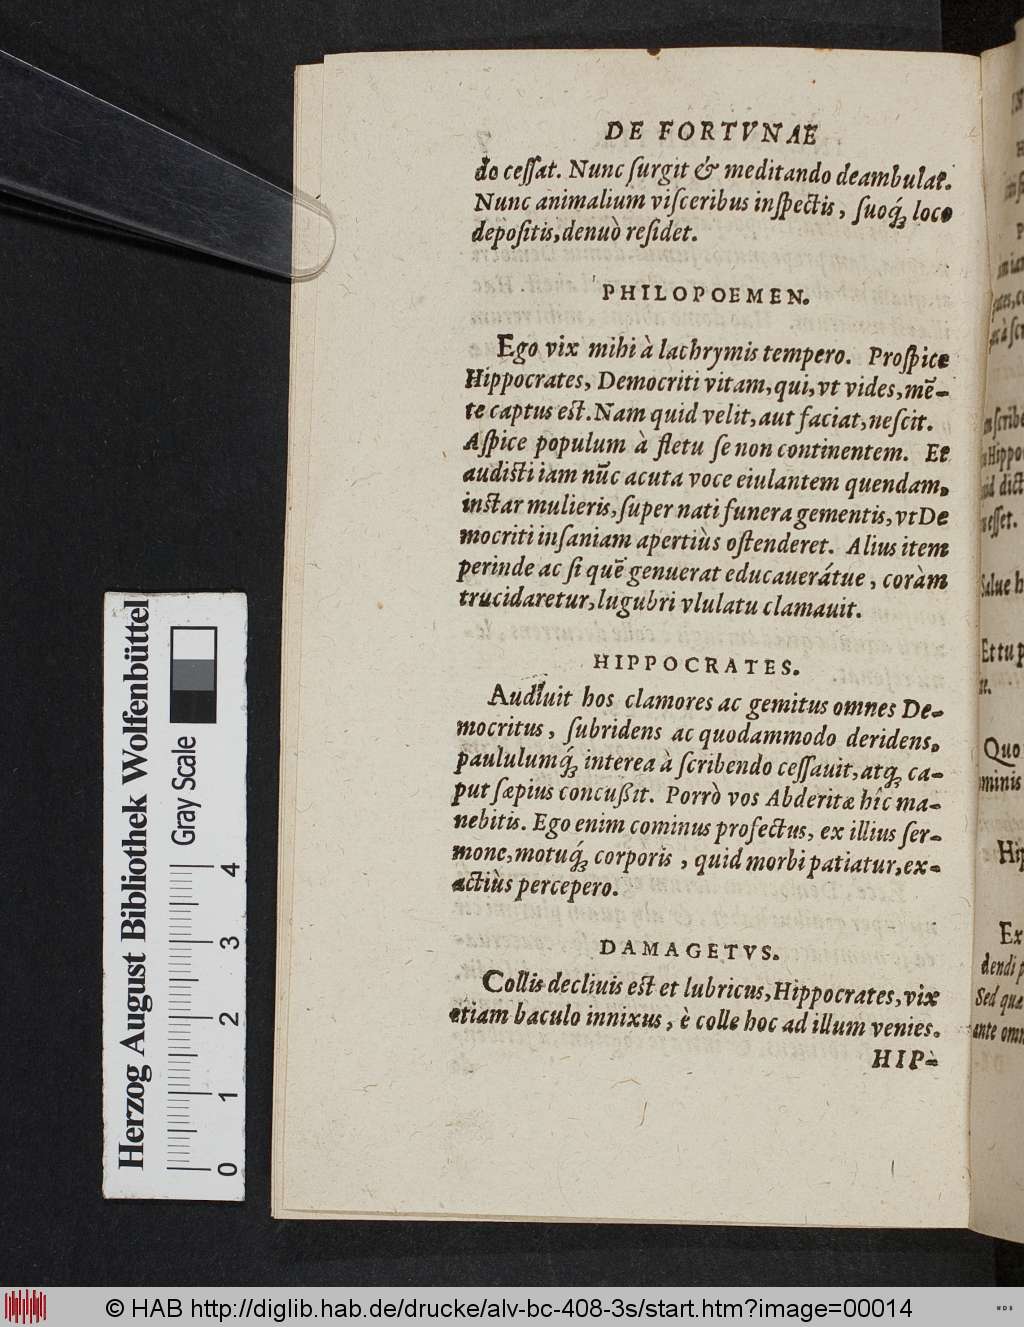 DE FORTVNAE
do ceſſat. Nunc ſurgit & meditando deambulat.
Nunc animalium viſceribus inſpectis, ſuoq́; loco
depoſitis, denuò reſidet.
PHILOPOEMEN.
Ego vix mihi à lachrymis tempero. Proſpice
Hippocrates, Democriti vitam, qui, vt vides, mē-
te captus est. Nam quid velit, aut faciat, neſcit.
Aſpice populum à fletu ſe non continentem. Et
audisti iam nūc acuta voce eiulantem quendam,
instar mulieris, ſuper nati funera gementis, vt De
mocriti inſaniam apertiùs oſtenderet. Alius item
perinde ac ſi quē genuerat educauerátue, coràm
trucidaretur, lugubri vlulatu clamauit.
HIPPOCRATES.
Audiuit hos clamores ac gemitus omnes De-
mocritus, ſubridens ac quodammodo deridens,
paululumq́; interea à ſcribendo ceſſauit, atq; ca-
put ſæpius concußit. Porrò vos Abderitæ hîc ma-
nebitis. Ego enim cominus profectus, ex illius ſer-
mone, motuq́; corporis, quid morbi patiatur, ex-
actiùs percepero.
DAMAGETVS.
Collis decliuis est et lubricus, Hippocrates, vix
etiam baculo innixus, è colle hoc ad illum venies.
HIP-
ſcribe
Hippo
dict
eſſet.
Salue h
Et tu p
Quo
minis
Hip
Ex
dendi p
Sed quæ
ante omn
Herzog August Bibliothek Wolfenbüttel
Gray Scale
0 1 2 3 4
© HAB http://diglib.hab.de/drucke/alv-bc-408-3s/start.htm?image=00014